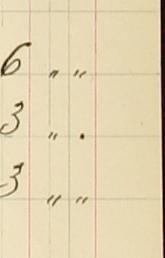 6 " "
3 " .
3 " "